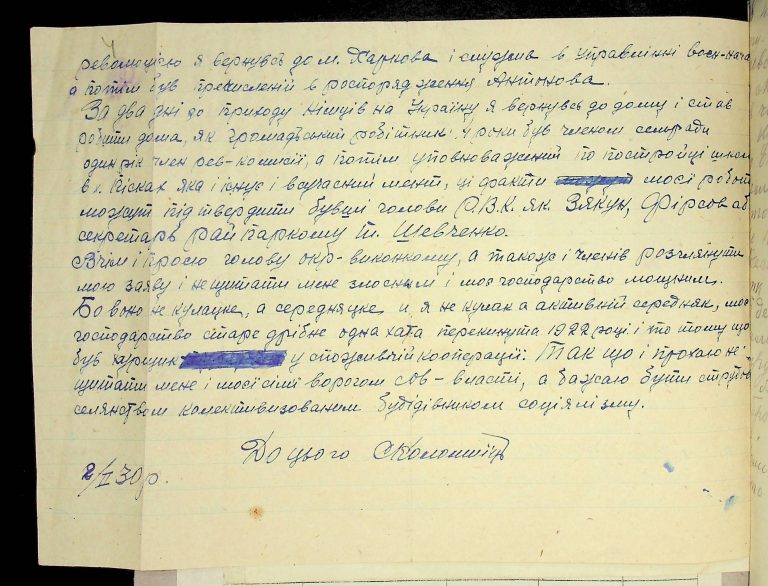 революцією я вернувсь до м. Харкова і служив в Управлінні воєн-нача
а потім був превислений в роспорядження Антонова.
За два дні до приходу німців на Україну я вернувсь до дому і став
робити дома, як громадський робітник. 4 роки був членом сельради
один рік член рев-комисії, а потім уповноважений по постройці школ
в с. Пісках яка і існує і в сучасний мент, ці факти моєї робот
можут підтвердити бувші голови Р.В.К. як. Зякун, Фірсов аб
секретарь райпаркому т. Шевченко.
В чім і просю голову окр-виконкому, а також і членів розглянути
мою заяву і нещитати мене злосним і моє господарство мощним.
Бо воно не кулацке, а середняцке и я не кулак а активній середняк, моє
господарство старе дрібне одна хата перекинута 1922 році і то тому що
був курщик у споживчій кооперації. Так що і прохаю не-
щитати мене і моєї сімі ворогом сов-власті, а бажаю бути з трудов
селянством колективизованим будідівником соціялізму.
До цього С Коломиїць
2/II 30 р.